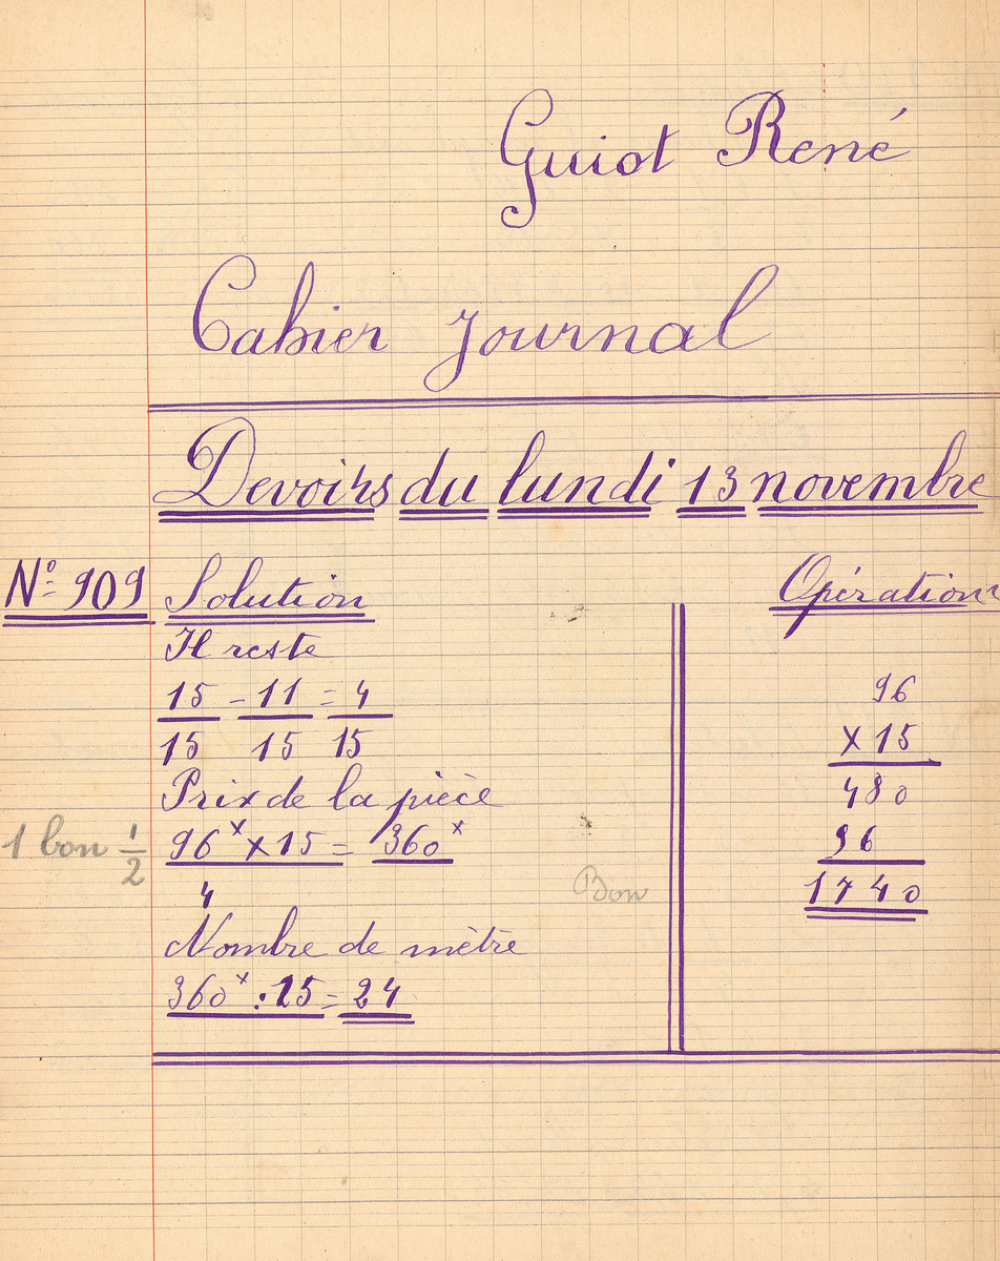 Guiot René
Cahier journal
Devoirs du lundi 13 novembre
N° 909 Solution
Il reste
15 - 11 = 4
15 15 15
Prix de la pièce
96ˣ x 15 = 360ˣ
4
1 bon 1/2
Bon
Nombre de mètre
360ˣ : 15 = 24
Opérations
96
x 15
480
96
1740